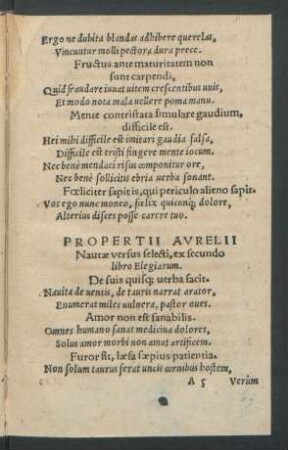 Ergo ne dubita blandas adhibere querelas,
Vincuntur molli pectora dura prece.
Fructus ante maturitatem non
sunt carpendi,
Quid fraudare iuuat uitem crescentibus uuis,
Et modo nota mala uellere poma manu.
Mente contristata simulare gaudium,
difficile est.
Hei mihi difficile est imitari gaudia falsa,
Difficile est tristi fingere mente iocum.
Nec benè mendaci risus componitur ore,
Nec benè sollicitis ebria uerba sonant.
Fœliciter sapit is, qui periculo alieno sapit.
Vos ego nunc moneo, fœlix quicunq; dolore,
Alterius disces posse carere tuo.
PROPERTII AVRELII
Nautæ versus selecti, ex secundo
libro Elegiarum.
De suis quisq; uerba facit.
Nauita de uentis, de tauris narrat arator,
Enumerat miles uulnera, pastor oues.
Amor non est sanabilis.
Omnes humano sanat medicina dolores,
Solus amor morbi non amat artificem.
Furor fit, læsa sæpius patientia.
Non solum taurus ferit uncis cornibus hostem,
A 5 Verùm